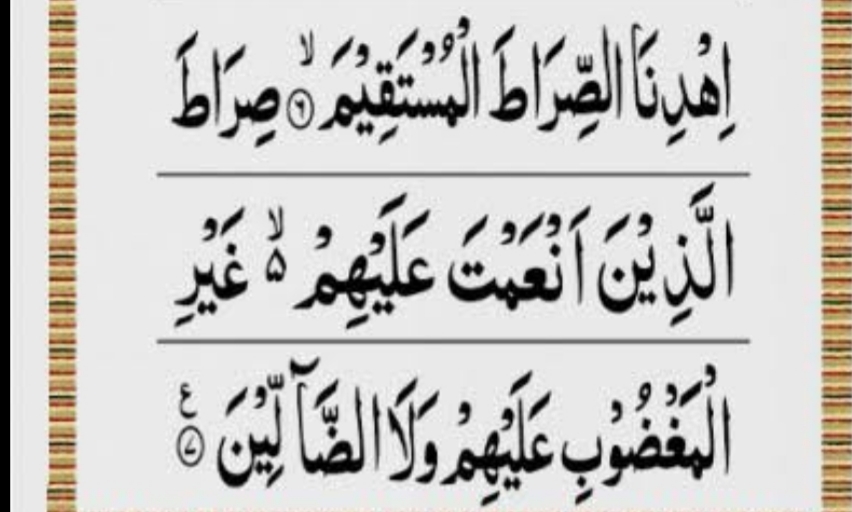 اِهْدِنَا الصِّرَاطَ الْمُسْتَقِيْمَ ۙ﴿۶﴾ صِرَاطَ
الَّذِيْنَ اَنْعَمْتَ عَلَيْهِمْ ۙ۵ غَيْرِ
الْمَغْضُوْبِ عَلَيْهِمْ وَلَا الضَّآلِّيْنَ ﴿۷﴾ ع